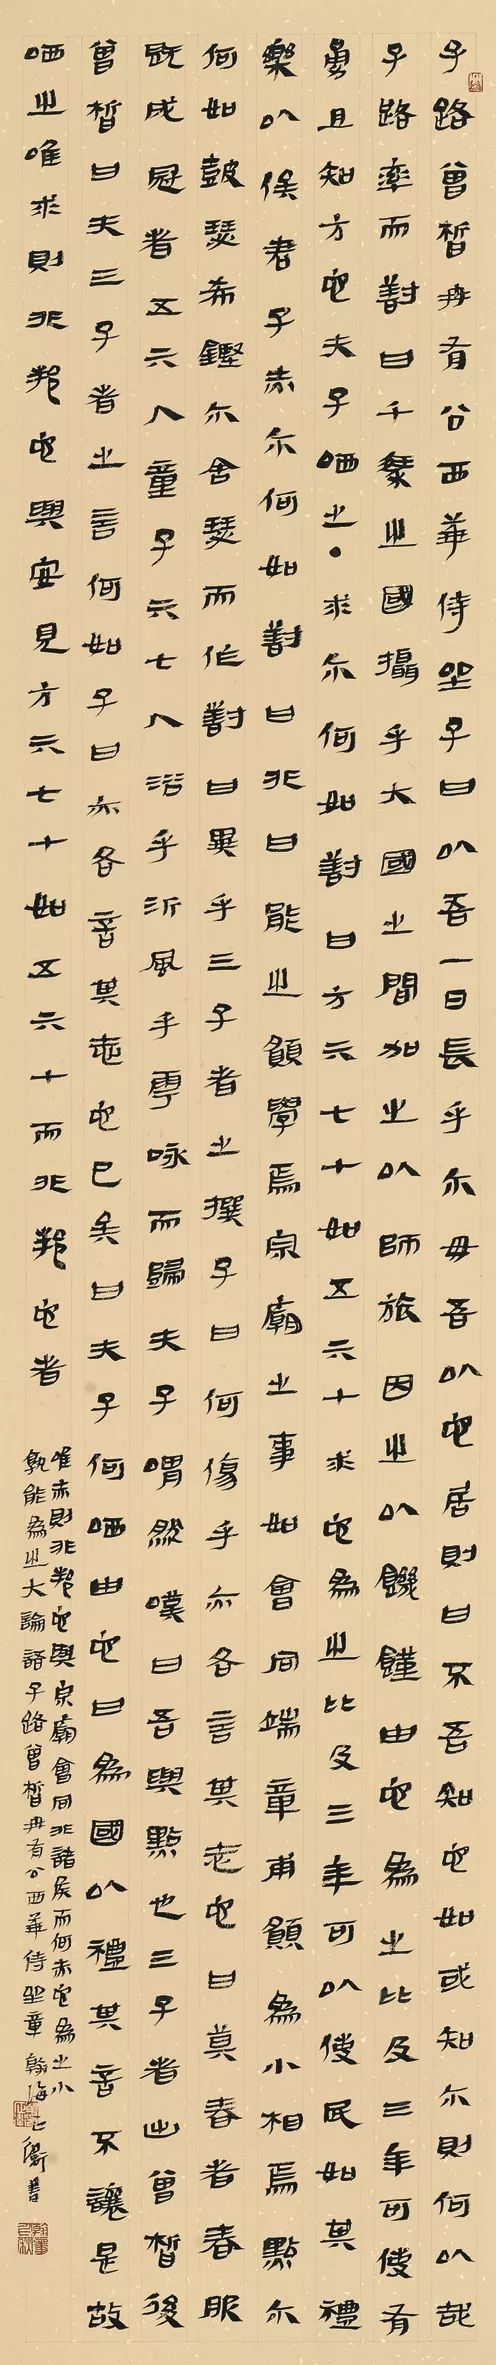 子路曾晳冉有公西華侍坐子曰以吾一日長乎尔毋吾以也居則曰不吾知也如或知尔則何以哉
子路率而對曰千乘之國攝乎大國之間加之以師旅因之以饑饉由也為之比及三年可使有
勇且知方也夫子哂之求尔何如對曰方六七十如五六十求也為之比及三年可以使民如其禮
樂以俟君子赤尔何如對曰非曰能之願學焉宗廟之事如會同端章甫願為小相焉點尔
何如鼓瑟希鏗尔舍瑟而作對曰異乎三子者之撰子曰何傷乎亦各言其志也曰莫春者春服
既成冠者五六人童子六七人浴乎沂風乎雩咏而歸夫子喟然嘆曰吾與點也三子者出曾晳後
曾晳曰夫三子者之言何如子曰亦各言其志也已矣曰夫子何哂由也曰為國以禮其言不讓是故
哂之唯求則非邦也與安見方六七十如五六十而非邦也者
唯赤則非邦也與宗廟會同非諸侯而何赤也為之小
孰能為之大論語子路曾晳冉有公西華侍坐章翰海書